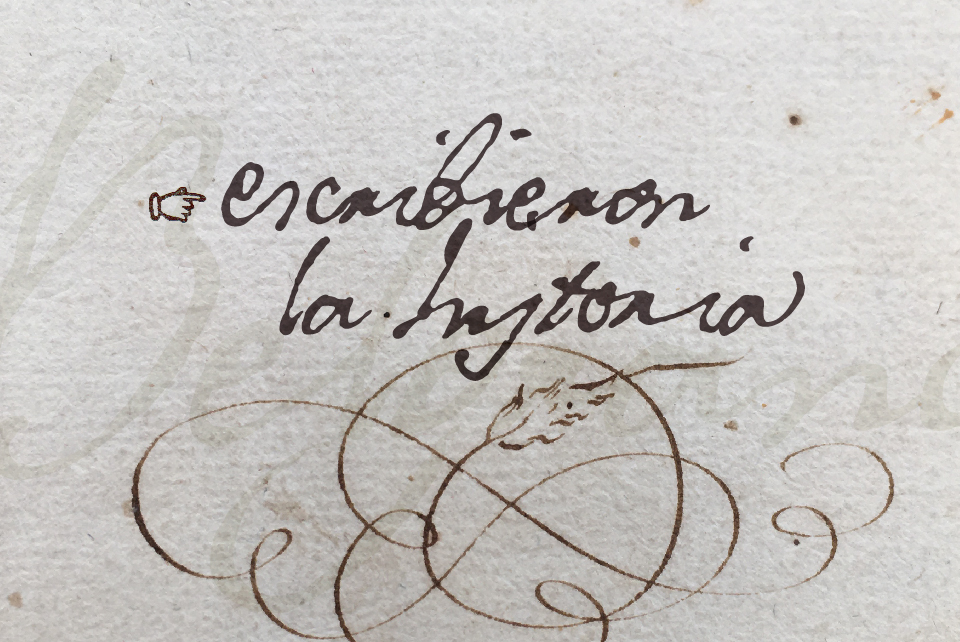 escribieron
la hystoria